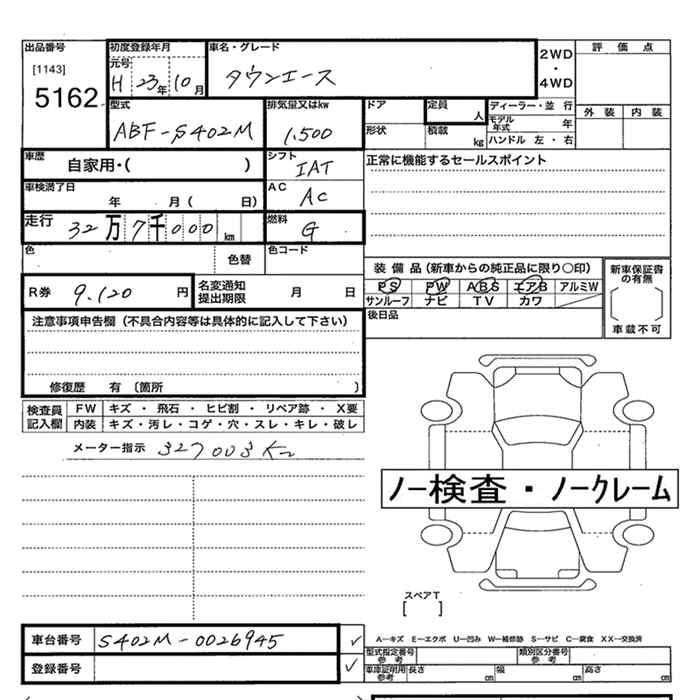 出品番号
[1143]
5162
初度登録年月
元号
H 23年 10月
車名・グレード
タウンエース
2WD
・
4WD
評価点
外装 内装
型式
ABF-S402M
排気量又はkw
1.500
ドア
形状
定員
人
積載
kg
ディーラー・並行
モデル年式 年
ハンドル 左・右
車歴 自家用・( )
シフト
IAT
正常に機能するセールスポイント
車検満了日
年 月( 日)
AC
AC
走行 32万7千000km
燃料
G
色
色替
色コード
R券 9.120円
名変通知
提出期限 月 日
装備品(新車からの純正品に限り○印)
PS PW ABS エアB アルミW
サンルーフ ナビ TV カワ
新車保証書
の有無
車載不可
注意事項申告欄(不具合内容等は具体的に記入して下さい)
後日品
修復歴 有 〔箇所 〕
検査員
記入欄
FW キズ・飛石・ヒビ割・リペア跡・X要
内装 キズ・汚レ・コゲ・穴・スレ・キレ・破レ
メーター指示 327003Km
ノー検査・ノークレーム
スペアT
[ ]
車台番号 S402M-0026945 ✓
登録番号 ✓
A―キズ E―エクボ U―凹み W―補修跡 S―サビ C―腐食 XX―交換済
型式指定番号
参考
類別区分番号
参考
車庫証明用
参考
長さ cm 幅 cm 高さ cm